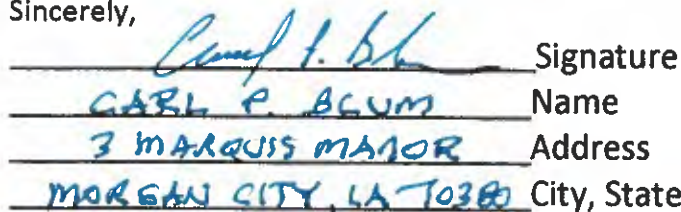 Sincerely,
Signature
CARL P. BLUM Name
3 MARQUIS MANOR Address
MORGAN CITY, LA 70380 City, State